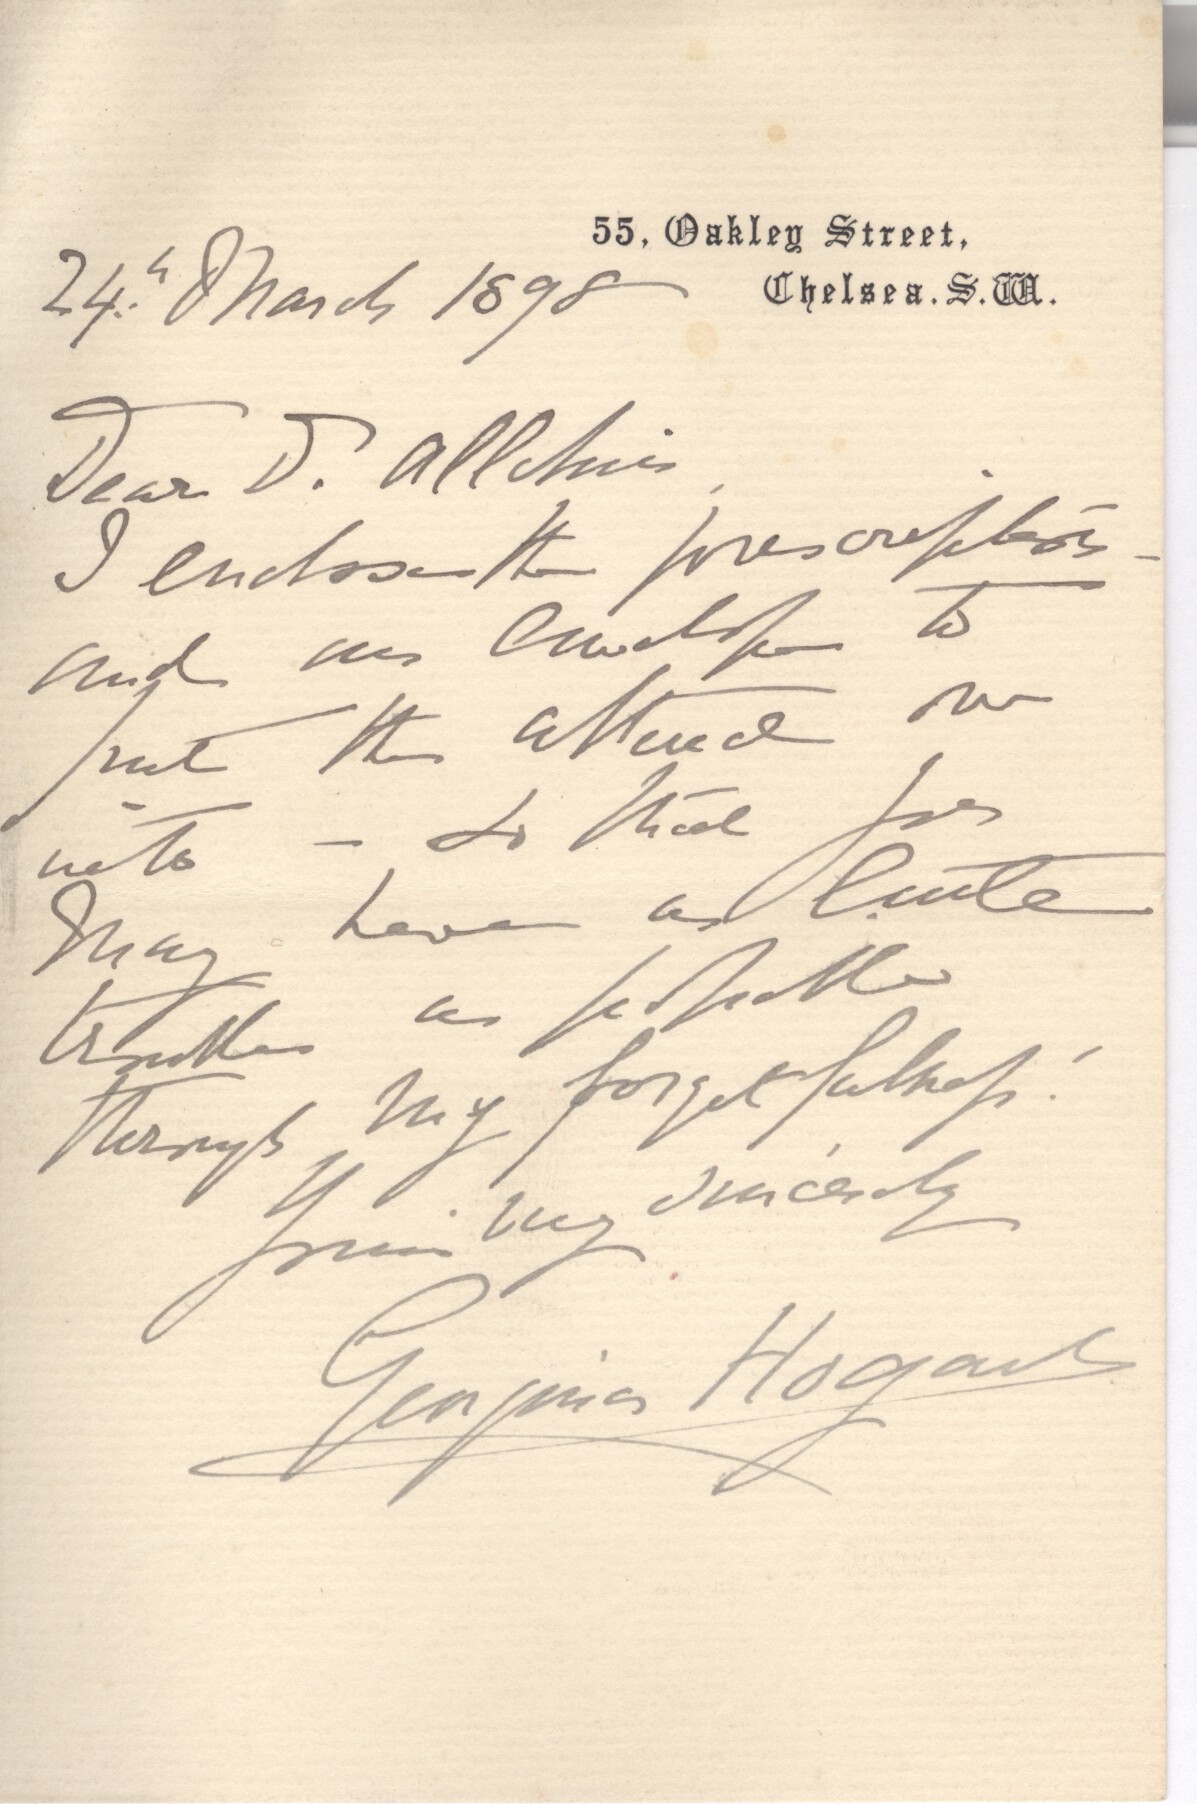 55, Oakley Street,
Chelsea. S.W.
24th March 1898
Dear D. Allchin,
I enclose the prescription –
and an envelope to
put the altered one
into – so that you
may have as little
trouble as possible
through my forgetfulness!
Yours very sincerely
Georgina Hogarth